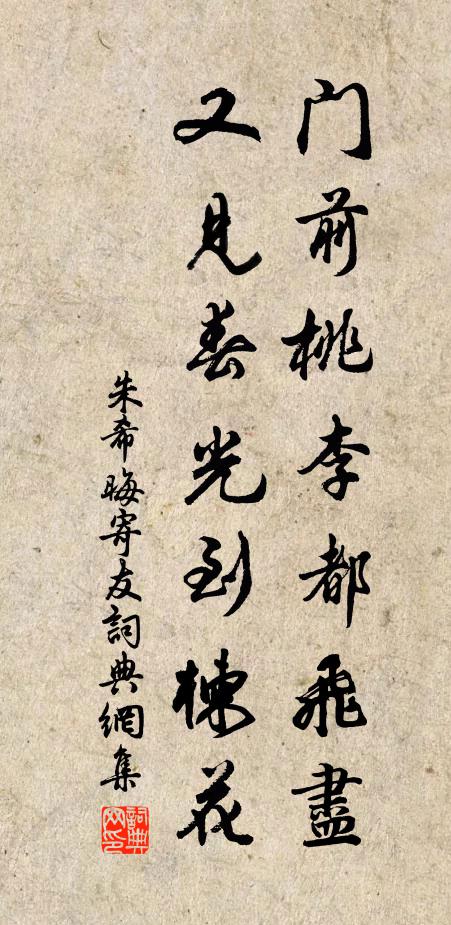 门前桃李都飛盡
又見春光到楝花
朱希晦寄友詞典網集
詞典网印